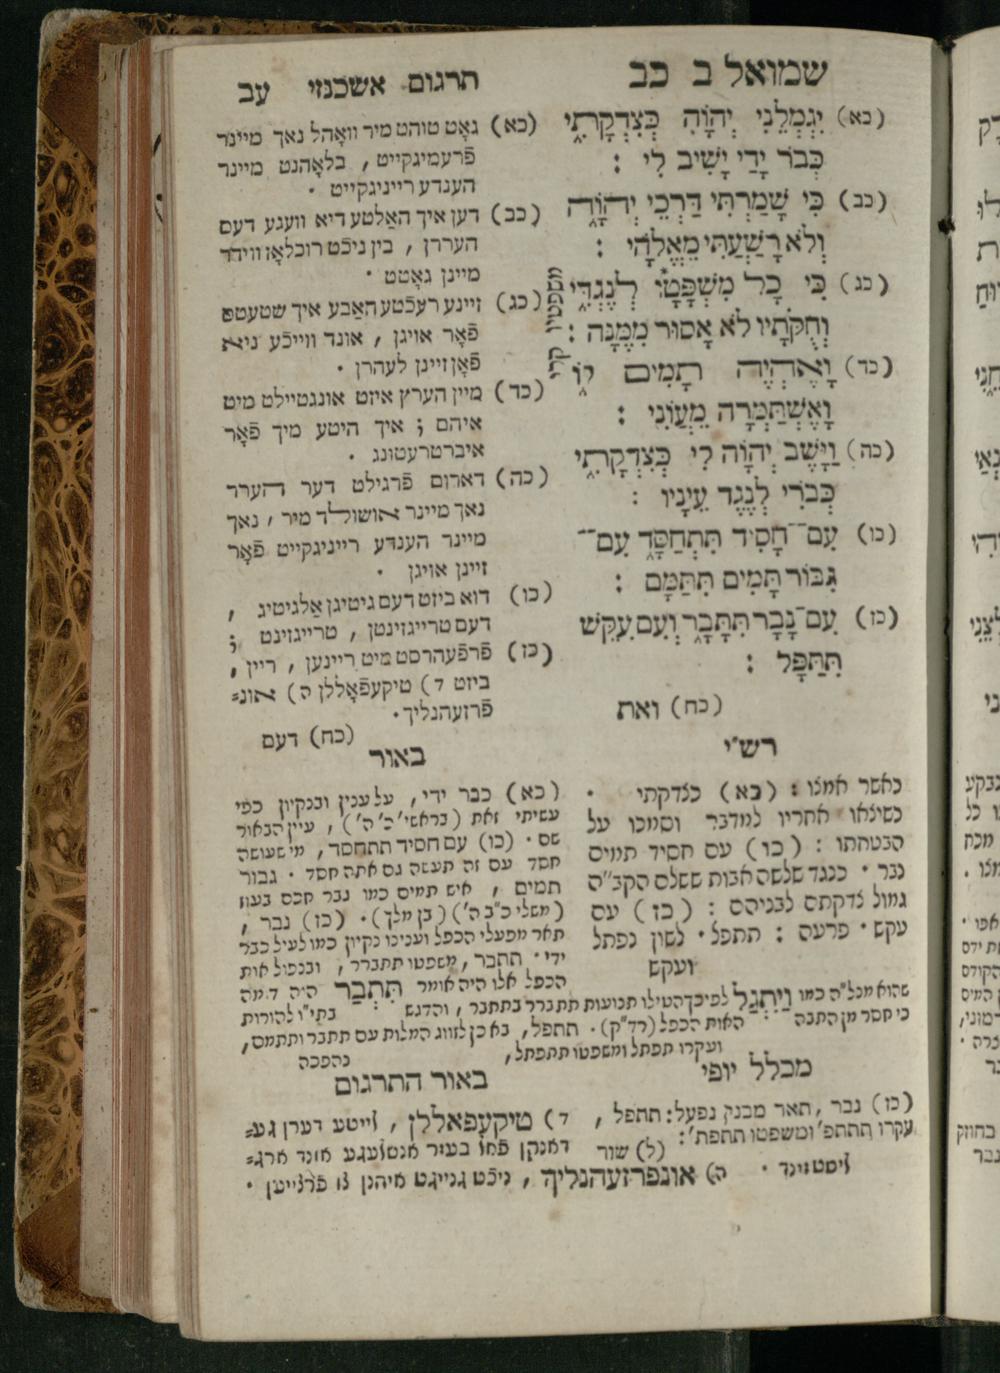 שמואל ב כב
תרגום אשכנזי עב
(כא) יִגְמְלֵנִי יְהֹוָה כְּצִדְקָתִי
כְּבֹר יָדַי יָשִׁיב לִי :
(כב) כִּי שָׁמַרְתִּי דַּרְכֵי יְהוָֹה
וְלֹא רָשַׁעְתִּי מֵאֱלֹהָי :
(כג) כִּי כָל מִשְׁפָּטָו לְנֶגְדִּי
וְחֻקֹּתָיו לֹא אָסוּר מִמֶּנָּה :
משפטיו קרי
(כד) וָאֶהְיֶה תָמִים לוֹ
וָאֶשְׁתַּמְּרָה מֵעֲוֹנִי :
(כה) וַיָּשֶׁב יְהֹוָה לִי כְּצִדְקָתִי
כְּבֹרִי לְנֶגֶד עֵינָיו :
(כו) עִם־חָסִיד תִּתְחַסָּד עִם־
גִּבּוֹר תָּמִים תִּתַּמָּם :
(כז) עִם־נָבָר תִּתָּבָר וְעִם עִקֵּשׁ
תִּתַּפָּל :
(כח) ואת
(כא) גאָט טוהט מיר וואָהל נאך מיינר
פֿרעמיגקייט , בלאָהנט מיינר
הענדע רייניגקייט .
(כב) דען איך האַלטע דיא וועגע דעס
העררן , בין ניכֿט רוכלאָז ווידר
מיינן גאָטט .
(כג) זיינע רעכֿטע האַבע איך שטעטס
פֿאָר אויגן , אונד ווייכֿע ניא
פֿאָן זיינן לעהרן .
(כד) מיין הערץ איזט אונגטיילט מיט
איהם ; איך היטע מיך פֿאָר
איברטרעטונג .
(כה) דארום פֿרגילט דער הערר
נאך מיינר אושולד מיר , נאך
מיינר הענדע רייניגקייט פֿאָר
זיינן אויגן .
(כו) דוא ביזט דעם גיטיגן אַלגיטיג ,
דעם טרייגזינטן , טרייגזינט ;
(כז) פֿרפֿעהרסט מיט ריינען , ריין ,
ביזט ד) טיקעפֿאָללן ה) אונ=
פֿרזעהנליך .
(כח) דעם
רש"י
כאשר אמנו : (כא) כצדקתי .
כשיצאו אחריו למדבר וסמכו על
הבטחתו : (כו) עם חסיד תמים
נבר . כנגד שלשה אבות ששלם הקב"ה
גמול צדקתם לבניהם : (כז) עם
עקש . פרעה : תתפל . לשון נפתל
ועקש
באור
(כא) כבר ידי , על ענין ובנקיון כפי
עשיתי זאת (בראשי' כ' ה') , עיין הבאור
שם . (כו) עם חסיד תתחסד , מי שעושה
חסד עם זה תעשה גם אתה חסד . גבור
תמים , איש תמים כמו גבר חכם בעוז
(משלי כ"ב ה') (בן מלך) . (כז) נבר ,
תאר מפעלי הכפל וענינו נקיון כמו לעיל כבר
ידי . תתבר , משפטו תתברר , ובנפול אות
הכפל אלו היה אומר תִּתְבַּר היה דמה
שהוא מנל"ה כמו וַיִּתְגַּל לפיכך הטילו תנועות תתברר בתתבר , והדגש בתי"ו להורות
כי חסר מן התבה האות הכפל (רד"ק) . תתפל , בא כן לזווג המלות עם תתבר ותתמם ,
ועקרו תפתל ומשפטו תתפתל , בהפכה
מכלל יופי
(כז) נבר , תאר מבנין נפעל : תתפל ,
עקרו תתתפ' ומשפטו תתפת' : (ל) שור
באור התרגום
ד) טיקעפאללן , זייטע דערן גע=
דאנקן פֿאן בעזר אנטזעגע אונד ארג=
ליסט זינד . ה) אונפרזעהנליך , ניכֿט גנייגט איהנן צו פֿרצייען .